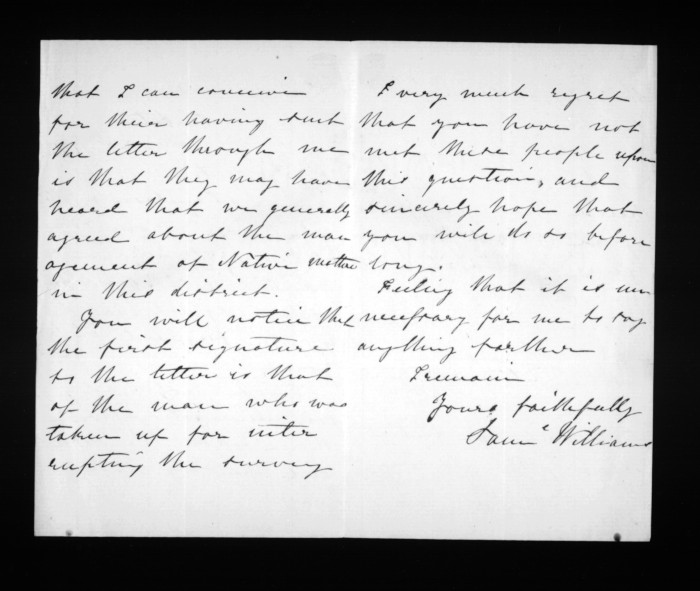 that I can conceive
for their having sent
the letter through me
is that they may have
heard that we generally
agreed about the man
agement of Native matters
in this district.
You will notice that
the first signature
to the letter is that
of the man who was
taken up for inter
rupting the survey
I very much regret
that you have not
met these people upon
this question, and
sincerely hope that
you will do so before
long.
Feeling that it is un
necessary for me to say
anything further
I remain
Yours faithfully
Saml Williams